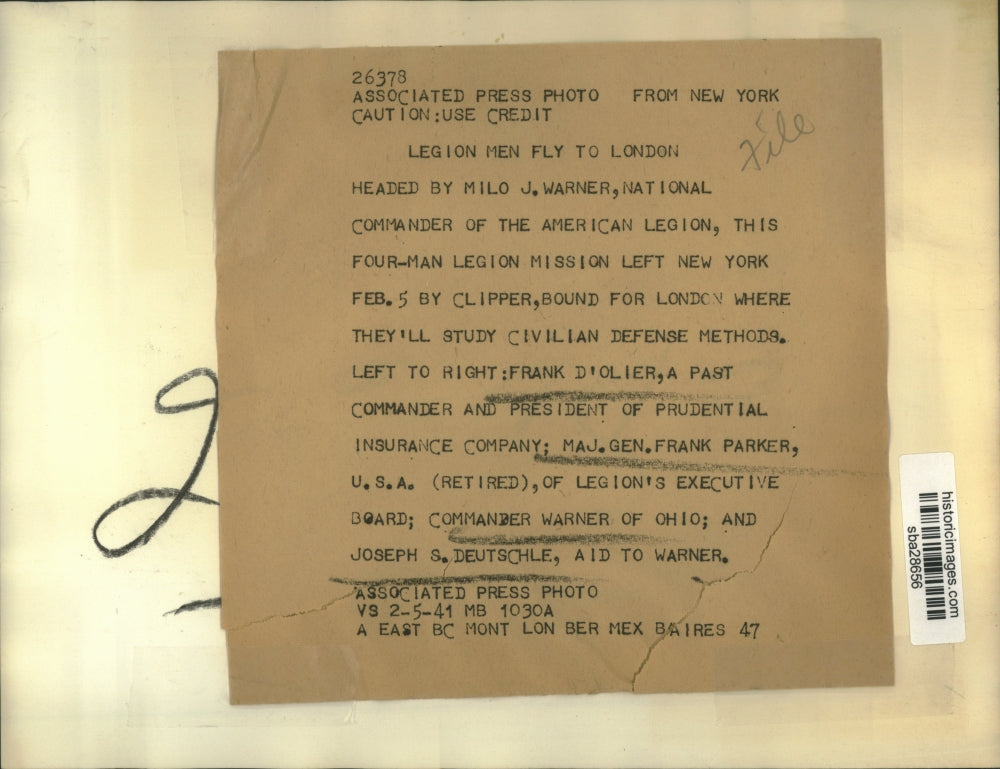 26378
ASSOCIATED PRESS PHOTO FROM NEW YORK
CAUTION:USE CREDIT
File
LEGION MEN FLY TO LONDON
HEADED BY MILO J.WARNER,NATIONAL
COMMANDER OF THE AMERICAN LEGION, THIS
FOUR-MAN LEGION MISSION LEFT NEW YORK
FEB.5 BY CLIPPER,BOUND FOR LONDON WHERE
THEY'LL STUDY CIVILIAN DEFENSE METHODS.
LEFT TO RIGHT:FRANK D'OLIER,A PAST
COMMANDER AND PRESIDENT OF PRUDENTIAL
INSURANCE COMPANY; MAJ.GEN.FRANK PARKER,
U.S.A. (RETIRED),OF LEGION'S EXECUTIVE
BOARD; COMMANDER WARNER OF OHIO; AND
JOSEPH S.DEUTSCHLE, AID TO WARNER.
ASSOCIATED PRESS PHOTO
VS 2-5-41 MB 1030A
A EAST BC MONT LON BER MEX BAIRES 47
2
historicimages.com
sba28656